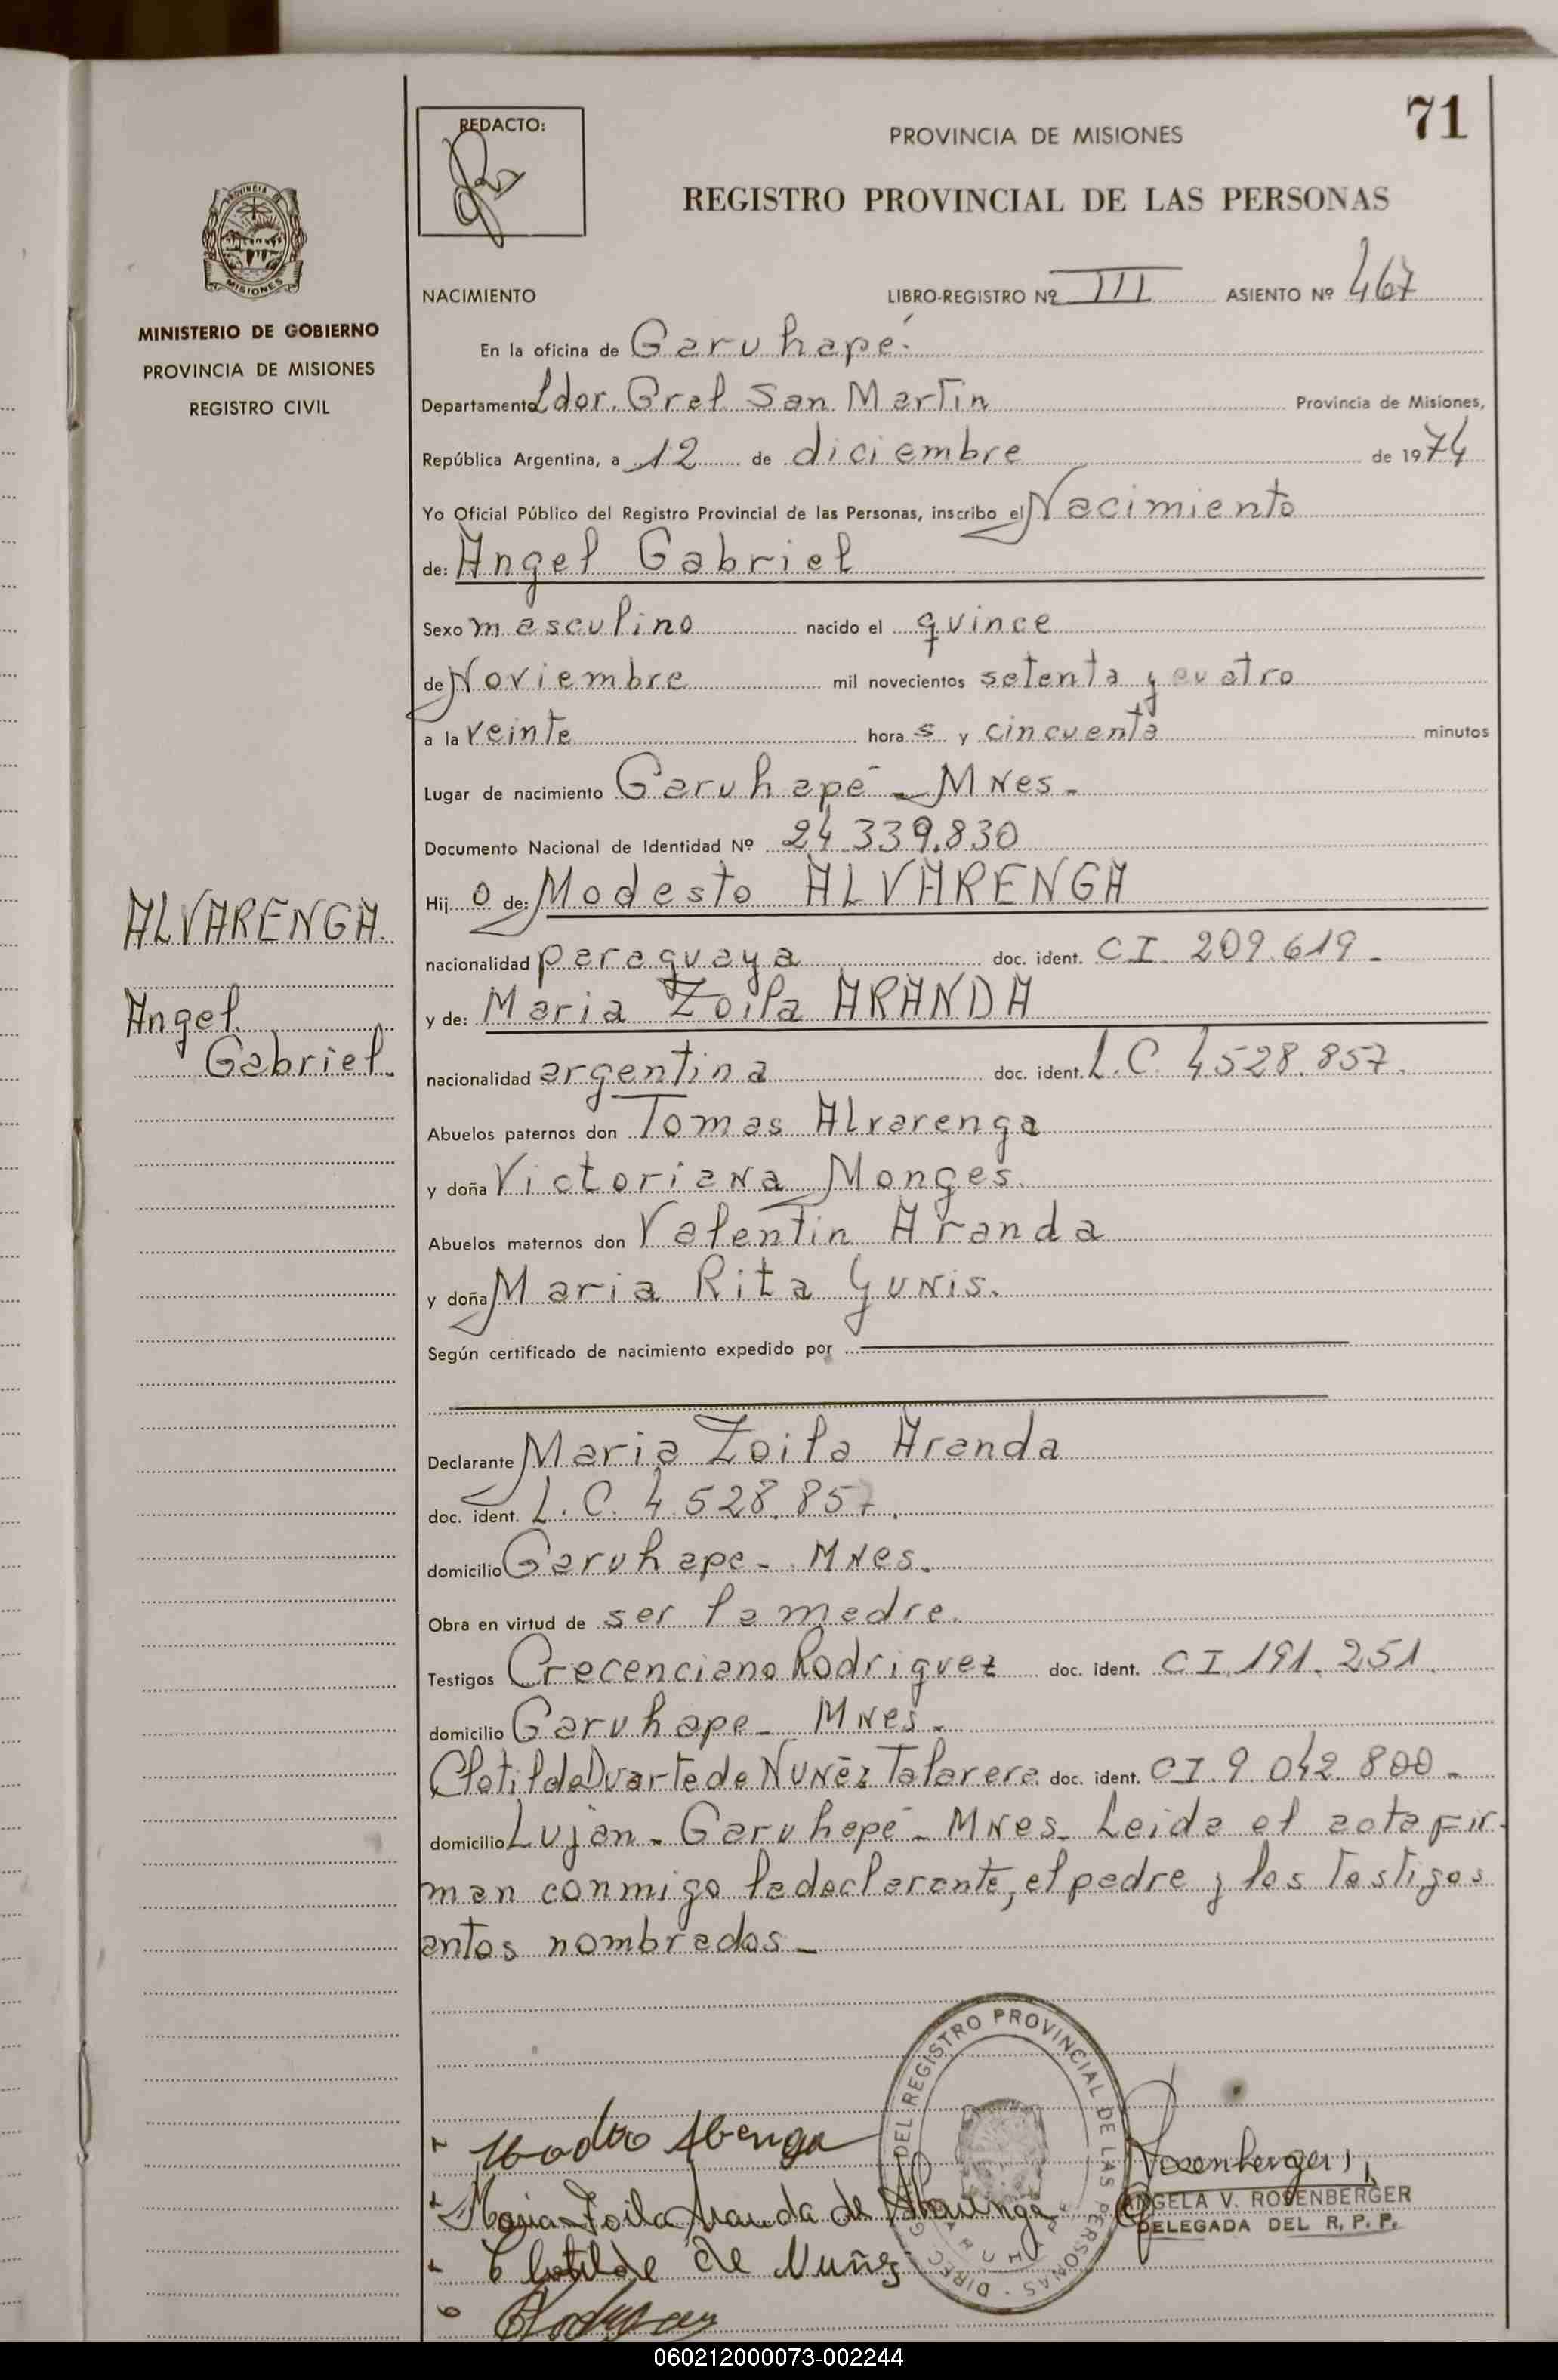 71
REDACTO:
PROVINCIA DE MISIONES
REGISTRO PROVINCIAL DE LAS PERSONAS
PROVINCIA DE
MISIONES
MINISTERIO DE GOBIERNO
PROVINCIA DE MISIONES
REGISTRO CIVIL
NACIMIENTO LIBRO-REGISTRO Nº III ASIENTO Nº 467
En la oficina de Garuhapé.
Departamento Ldor. Gral San Martin Provincia de Misiones,
República Argentina, a 12 de diciembre de 1974
Yo Oficial Público del Registro Provincial de las Personas, inscribo el Nacimiento
de: Angel Gabriel
Sexo masculino nacido el quince
de Noviembre mil novecientos setenta y cuatro
a la veinte hora s y cincuenta minutos
Lugar de nacimiento Garuhapé - MNes -
Documento Nacional de Identidad Nº 24 339.830
Hij o de: Modesto ALVARENGA
ALVARENGA.
nacionalidad paraguaya doc. ident. CI. 209.619 -
Angel
y de: Maria Zoila ARANDA
Gabriel.
nacionalidad argentina doc. ident. L.C. 4528.857.
Abuelos paternos don Tomas Alvarenga
y doña Victoriana Monges.
Abuelos maternos don Valentin Aranda
y doña Maria Rita Yunis.
Según certificado de nacimiento expedido por
Declarante Maria Zoila Aranda
doc. ident. L.C. 4 528.857.
domicilio Garuhape - MNes.
Obra en virtud de ser la madre.
Testigos Crecenciano Rodriguez doc. ident. CI. 191.251.
domicilio Garuhape - MNes.
Clotilde Duarte de Nuñez Talavera. doc. ident. CI. 9.042.800 -
domicilio Luján - Garuhapé - MNes - Leida el acta fir-
man conmigo la declarante, el padre y los testigos
antes nombrados -
DIREC. G DEL REGISTRO PROVINCIAL DE LAS PERSONAS
Maria Zoila Aranda de Alvarenga
Rosenberger
ANGELA V. ROSENBERGER
DELEGADA DEL R. P. P.
Clotilde de Nuñez
060212000073-002244